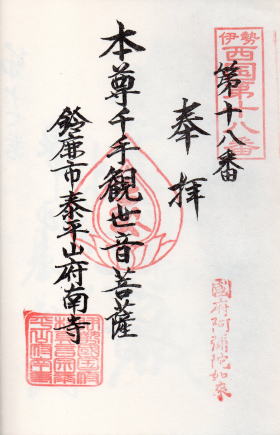 伊勢
西国第十八番
第十八番
奉拝
本尊千手観世音菩薩
鈴鹿市泰平山府南寺
國府阿彌陀如来